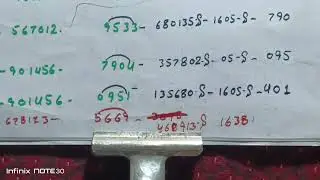 567012. 9533- 680135-S- 1605-S- 790
-901456- 7904- 357802-S-05-S- 095
-901456- 0951- 135680-S-1605-S-401
678123- 5669- 468913-S 1638
Infinix NOTE30